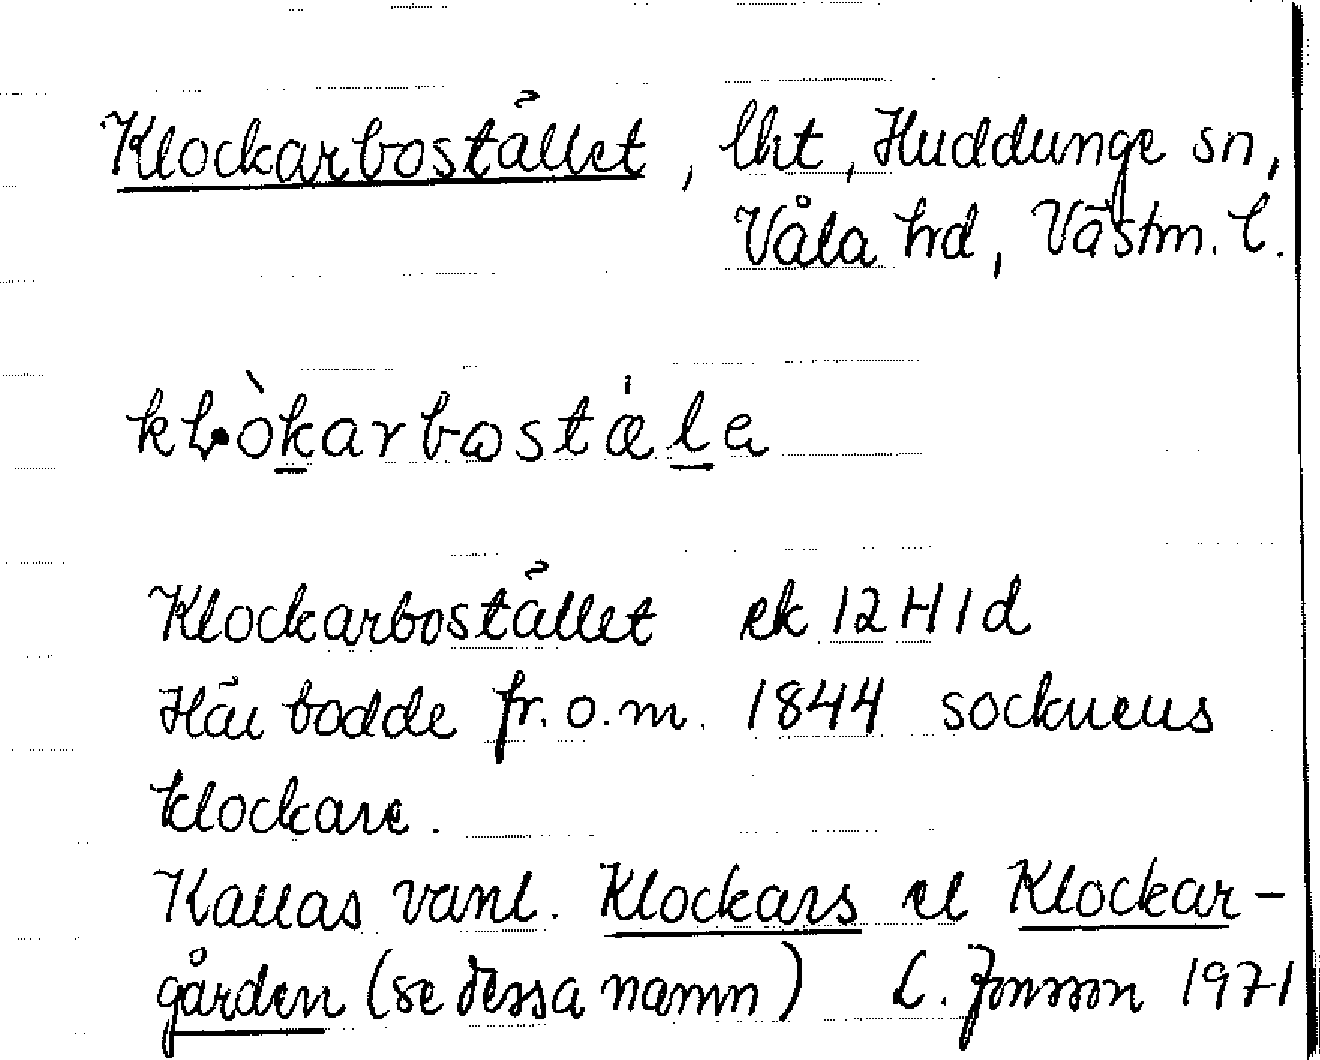 Klockarbostället, lht, Huddunge sn,
Våla hd, Västm. l.
Klockarbostället ek 12H1d
Här bodde fr.o.m. 1844 socknens
klockare.
Kallas vanl. Klockars el Klockar-
gården (se dessa namn) L. Jonsson 1971